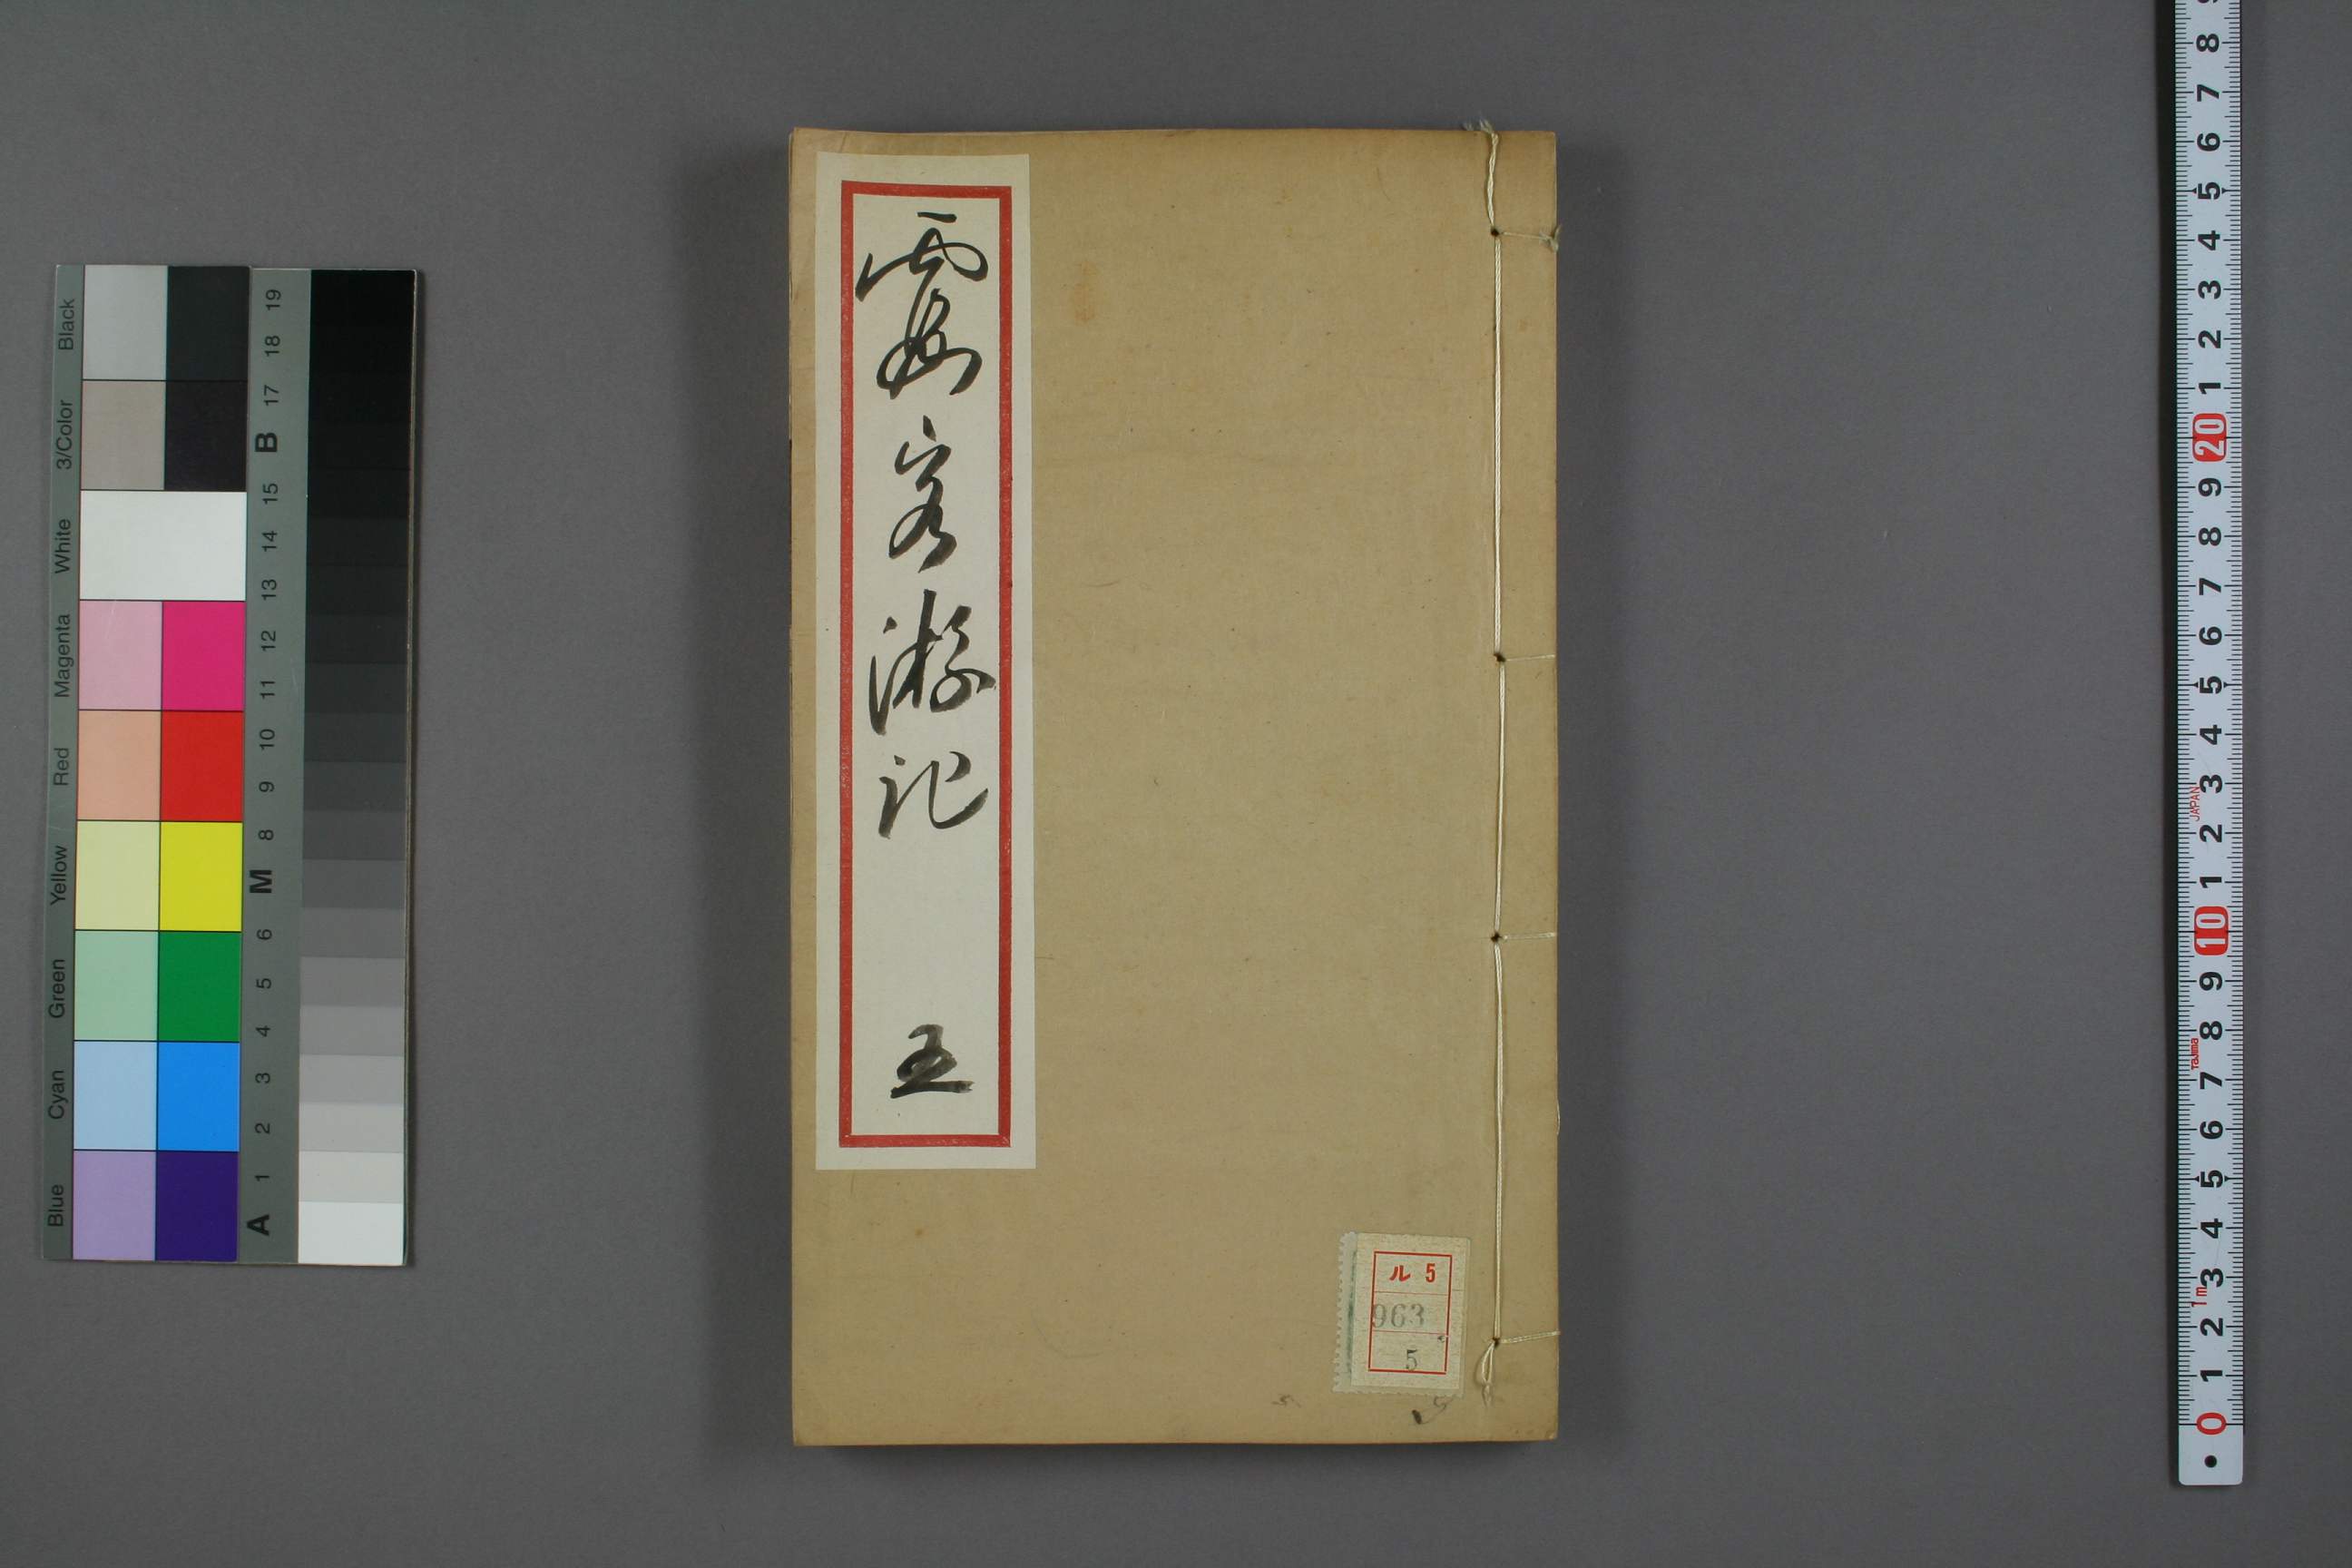 霞客游記
五
ル 5
963
5
Blue Cyan Green Yellow Red Magenta White 3/Color Black
A 1 2 3 4 5 6 M 8 9 10 11 12 13 14 15 B 17 18 19
0 1 2 3 4 5 6 7 8 9 10 1 2 3 4 5 6 7 8 9 20 1 2 3 4 5 6 7 8
1m
Tajima
JAPAN